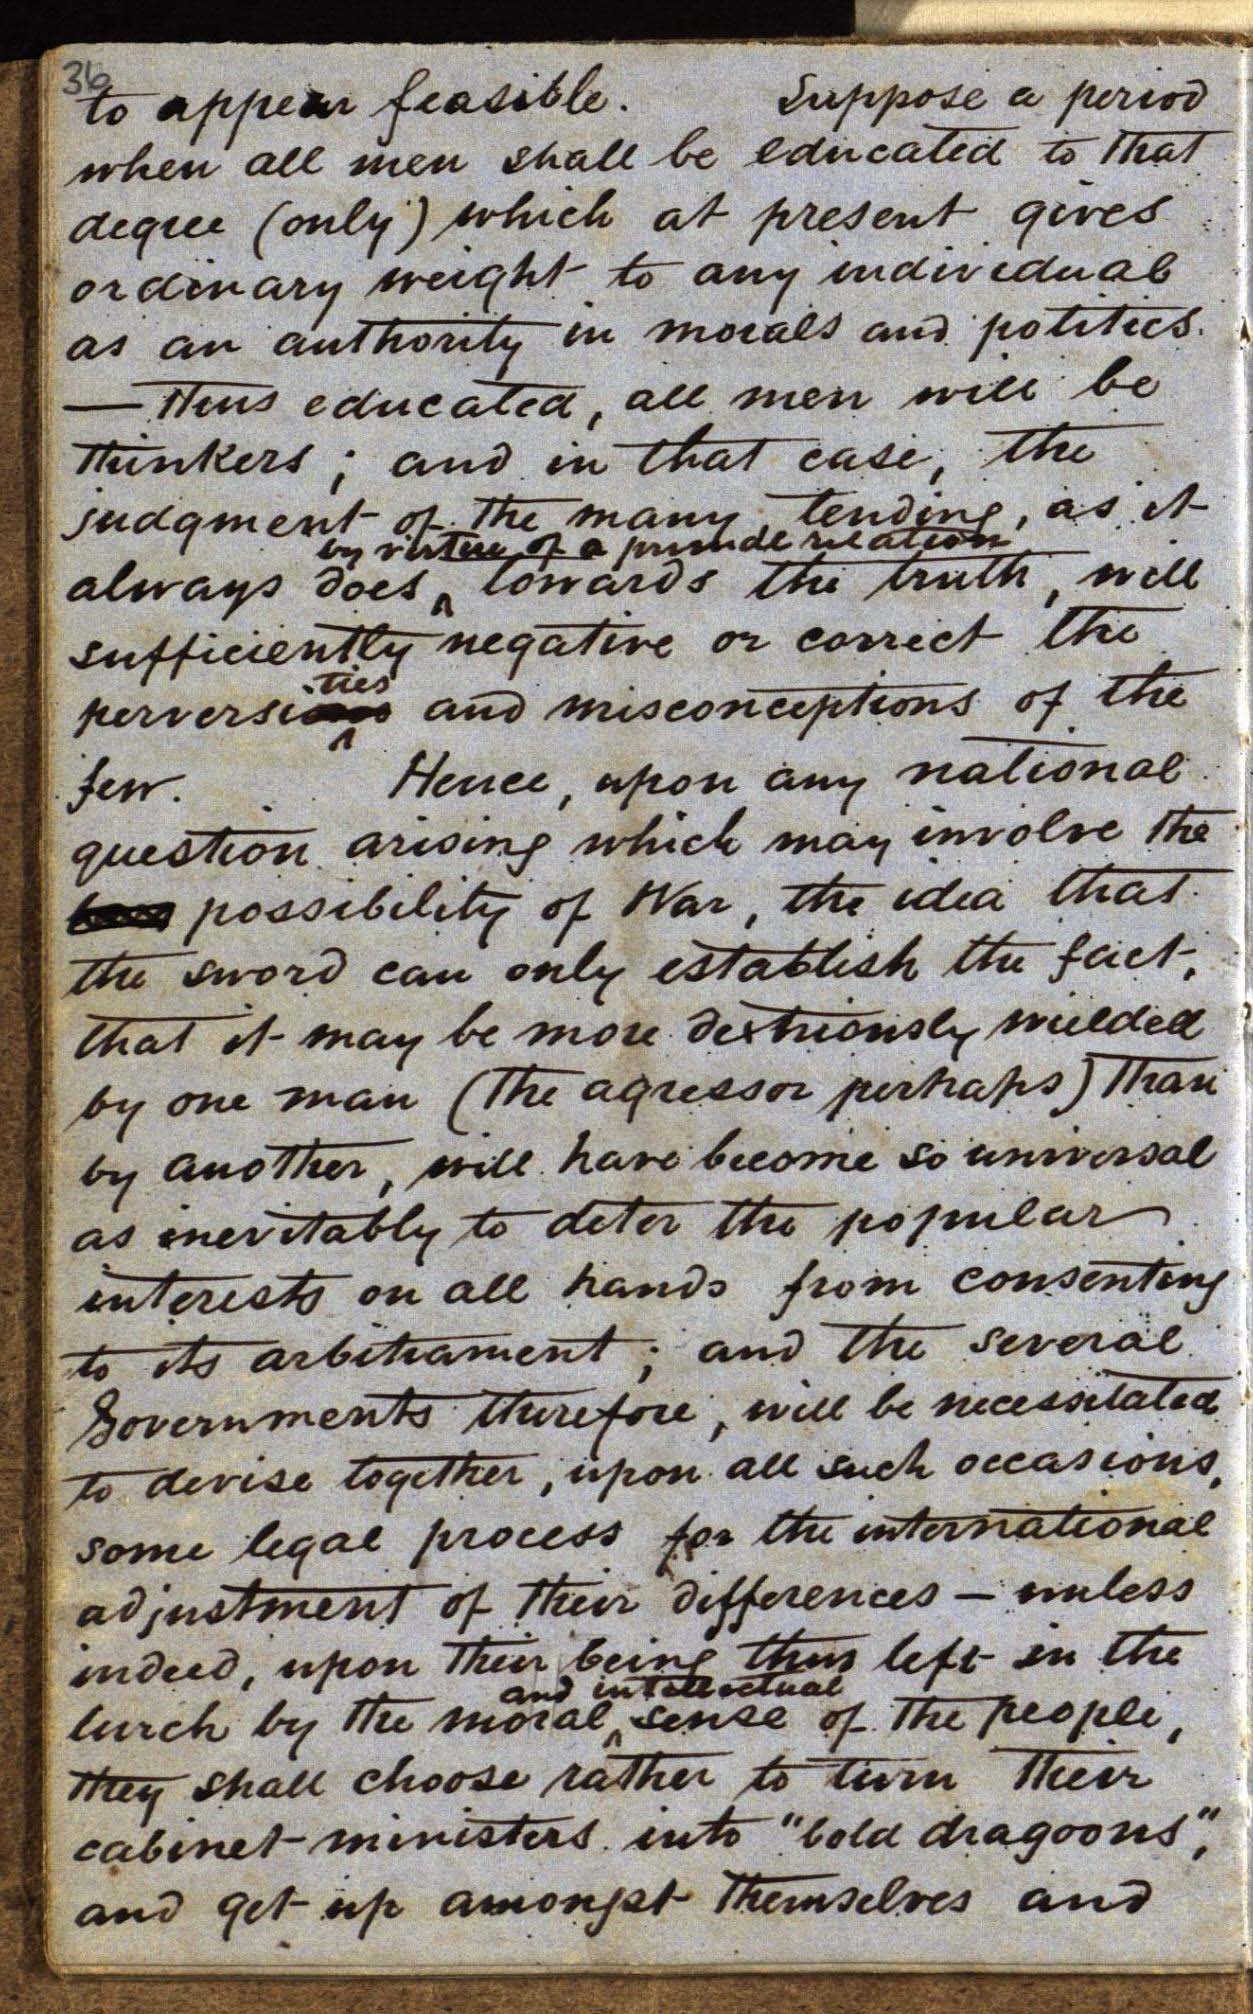 36
to appear feasible. Suppose a period
when all men shall be educated to that
degree (only) which at present gives
ordinary weight to any individual
as an authority in morals and politics.
— thus educated, all men will be
thinkers; and in that case, the
judgment of the many, tending, as it
by virtue of a primal relation
always does, towards the truth, will
sufficiently negative or correct the
ties
perversi and misconceptions of the
few. Hence, upon any national
question arising which may involve the
possibility of War, the idea that
the sword can only establish the fact,
that it may be more dextriously wielded
by one man (the agressor perhaps) than
by another, will have become so universal
as inevitably to deter the popular
interests on all hands from consenting
to its arbitrament; and the several
Governments therefore, will be necessitated
to devise together, upon all such occasions,
some legal process for the international
adjustment of their differences — unless
indeed, upon their being thus left in the
and intellectual
lurch by the moral sense of the people,
they shall choose rather to turn their
cabinet-ministers into "bold dragoons",
and get up amongst themselves and